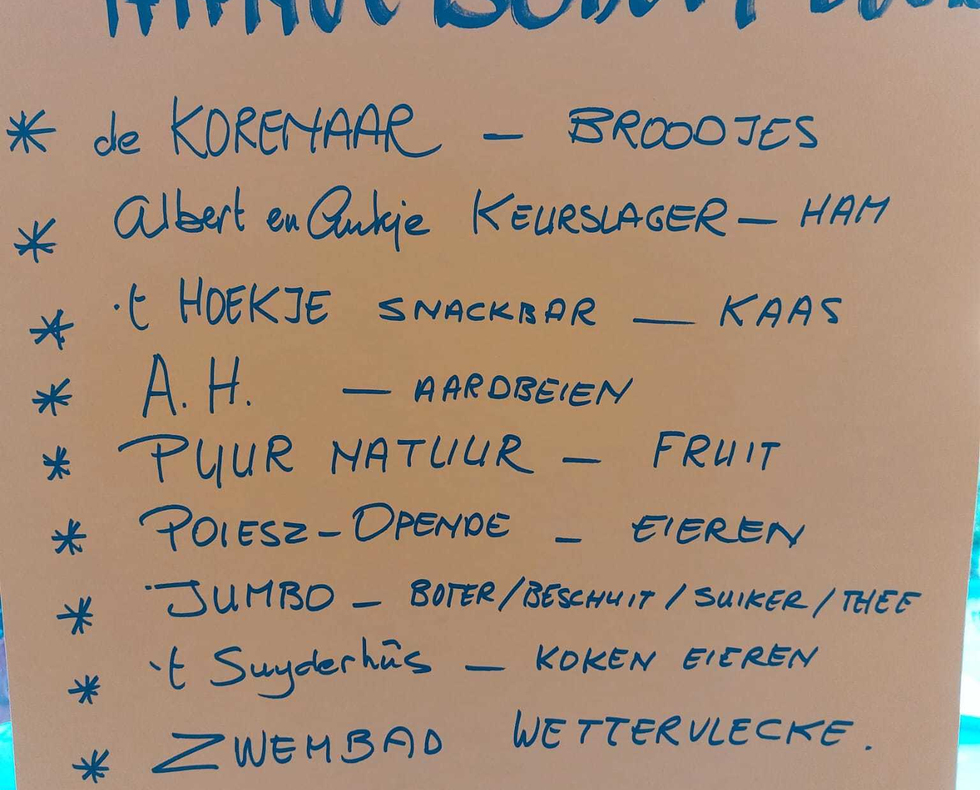 * de KORENAAR – BROODJES
* Albert en Aukje KEURSLAGER – HAM
* 't HOEKJE SNACKBAR – KAAS
* A.H. – AARDBEIEN
* PUUR NATUUR – FRUIT
* POIESZ-OPENDE – EIEREN
* JUMBO – BOTER/BESCHUIT/SUIKER/THEE
* 't Suyderhûs – KOKEN EIEREN
* ZWEMBAD WETTERVLECKE.